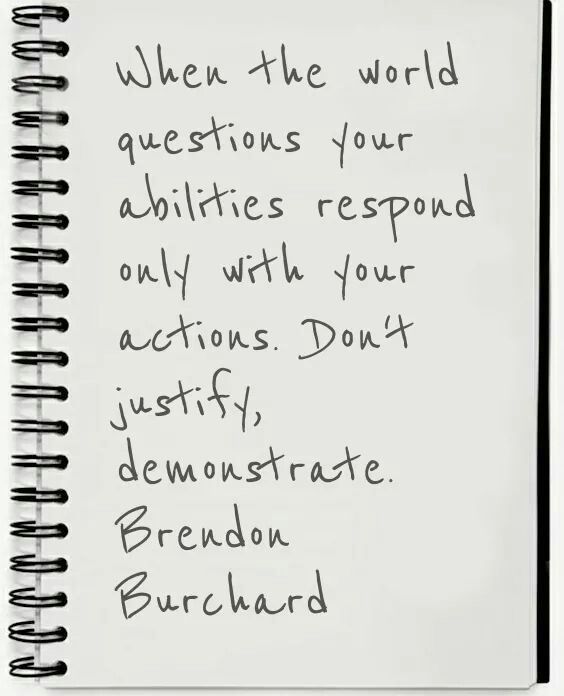 When the world
questions your
abilities respond
only with your
actions. Don't
justify,
demonstrate.
Brendon
Burchard